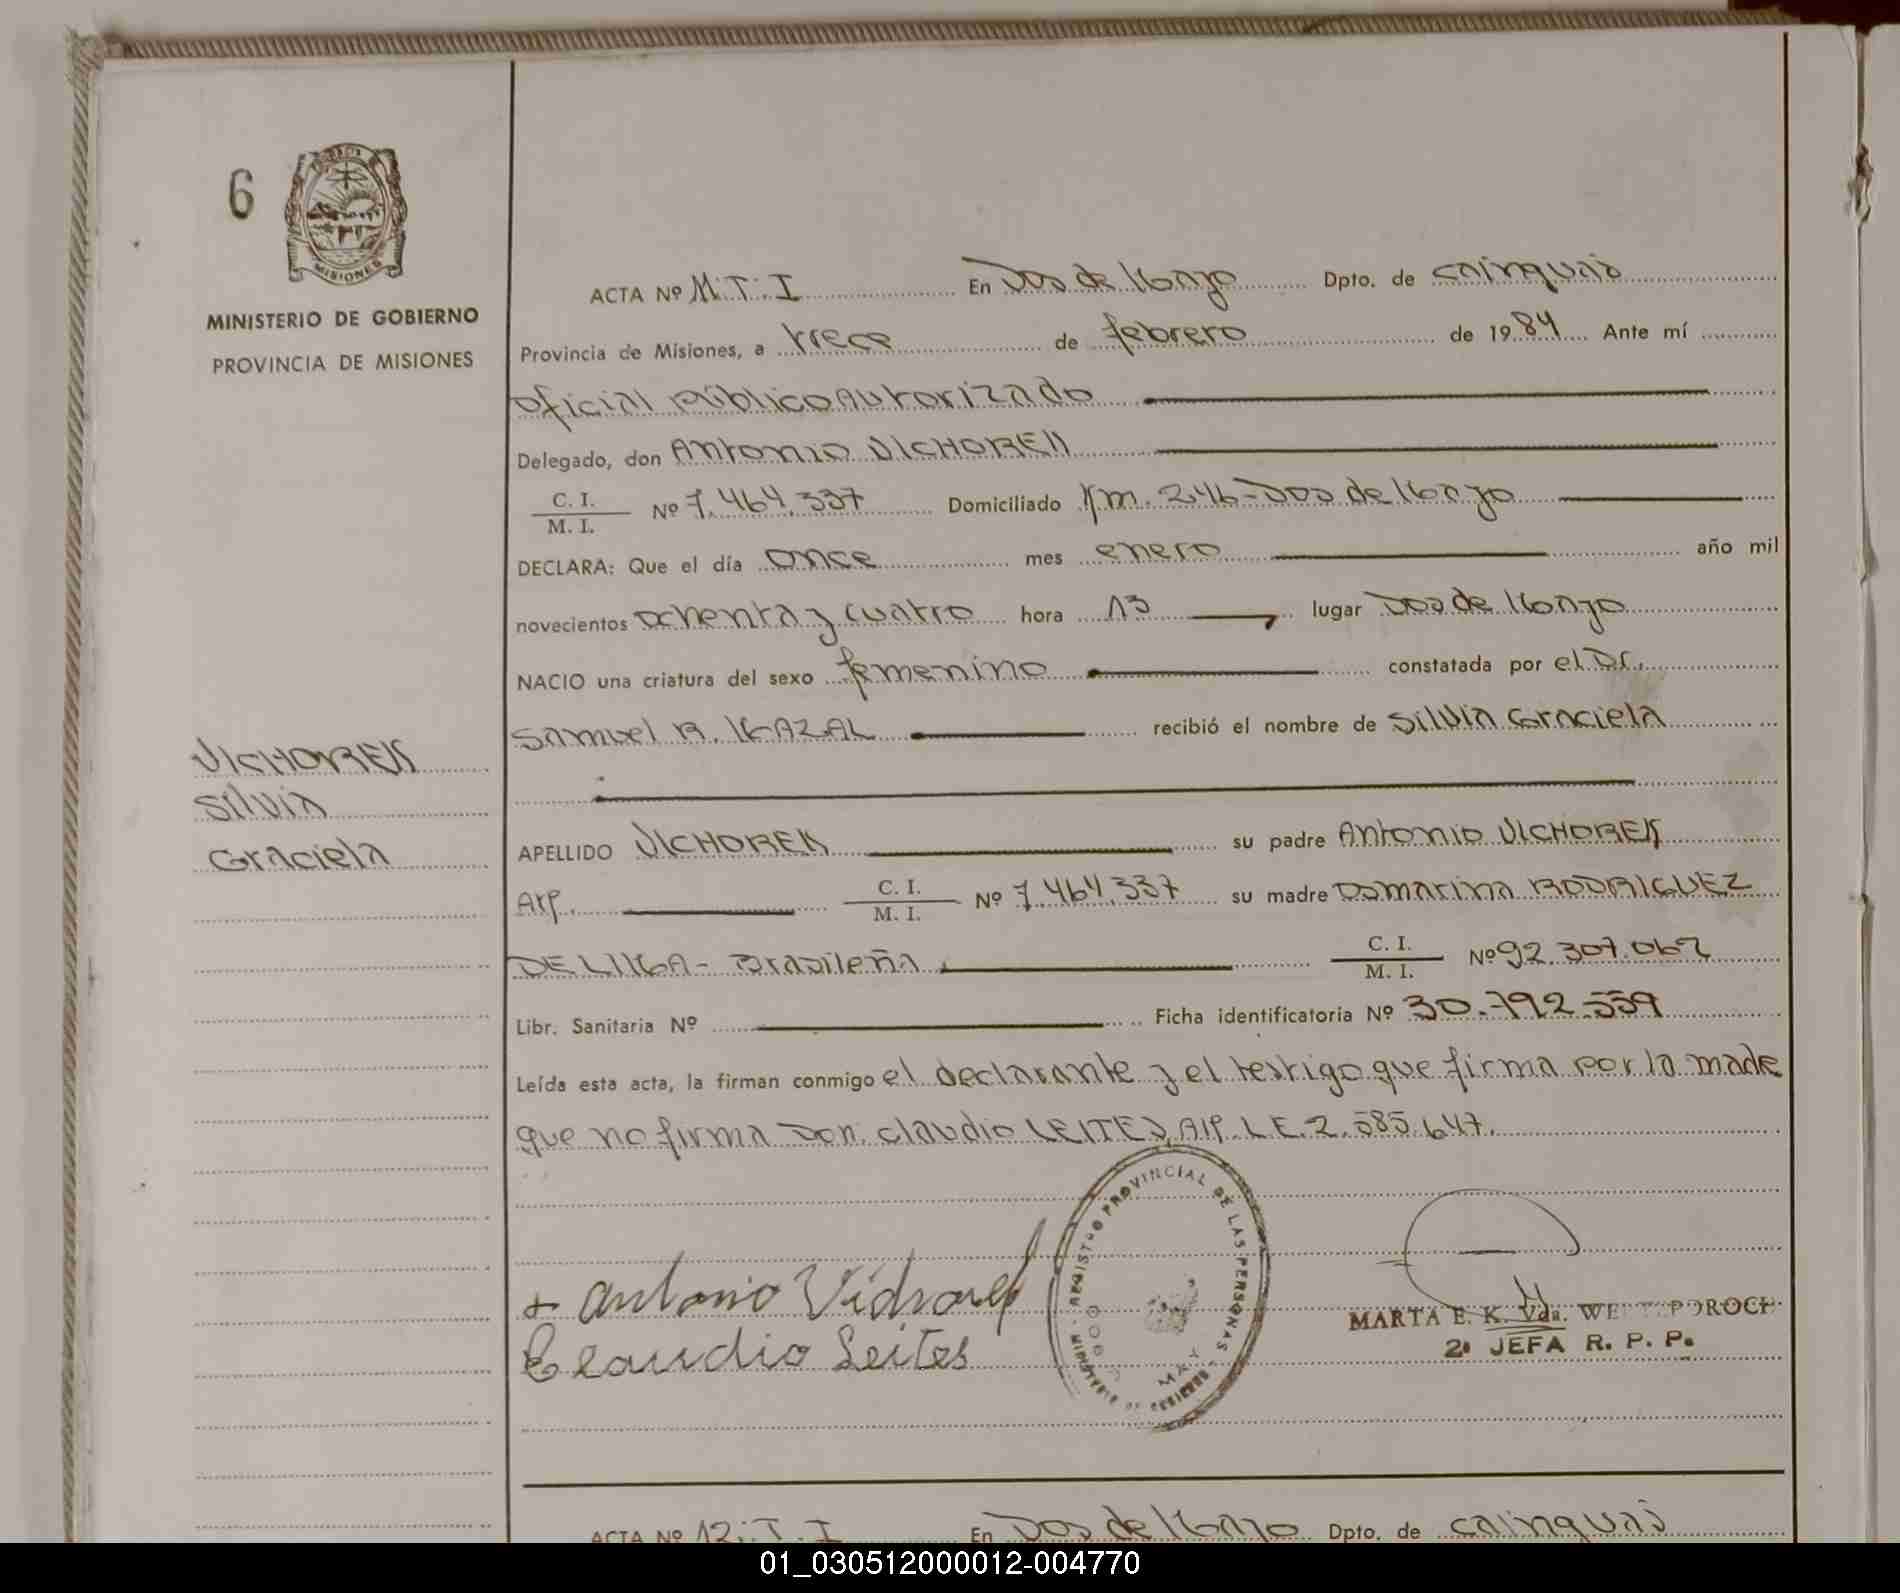 6
MISIONES
MINISTERIO DE GOBIERNO
PROVINCIA DE MISIONES
ACTA Nº 11.T.I En Dos de Mayo Dpto. de Cainguás
Provincia de Misiones, a trece de febrero de 1984 Ante mí
Oficial Público Autorizado
Delegado, don Antonio VICHOREK
C. I.
M. I. Nº 7.464.337 Domiciliado Km. 246-Dos de Mayo
DECLARA: Que el día once mes enero año mil
novecientos ochenta y cuatro hora 13 lugar Dos de Mayo
NACIO una criatura del sexo femenino constatada por el Dr.
Samuel R. KAZAL recibió el nombre de Silvia Graciela
VICHOREK
Silvia
Graciela
APELLIDO VICHOREK su padre Antonio VICHOREK
Arg. C. I.
M. I. Nº 7.464.337 su madre Domarina RODRIGUEZ
DE LIMA - Brasileña C. I.
M. I. Nº 92.307.067
Libr. Sanitaria Nº Ficha identificatoria Nº 30.792.559
Leída esta acta, la firman conmigo el declarante y el testigo que firma por la madre
que no firma Don. Claudio LEITES, Arg. L.E. 2.585.647.
REGISTRO PROVINCIAL DE LAS PERSONAS
+ Antonio
Claudio Leites
MARTA E. K. Vda.
2ª JEFA R. P. P.
ACTA Nº 12.T.I En Dos de Mayo Dpto. de Cainguás
01_030512000012-004770